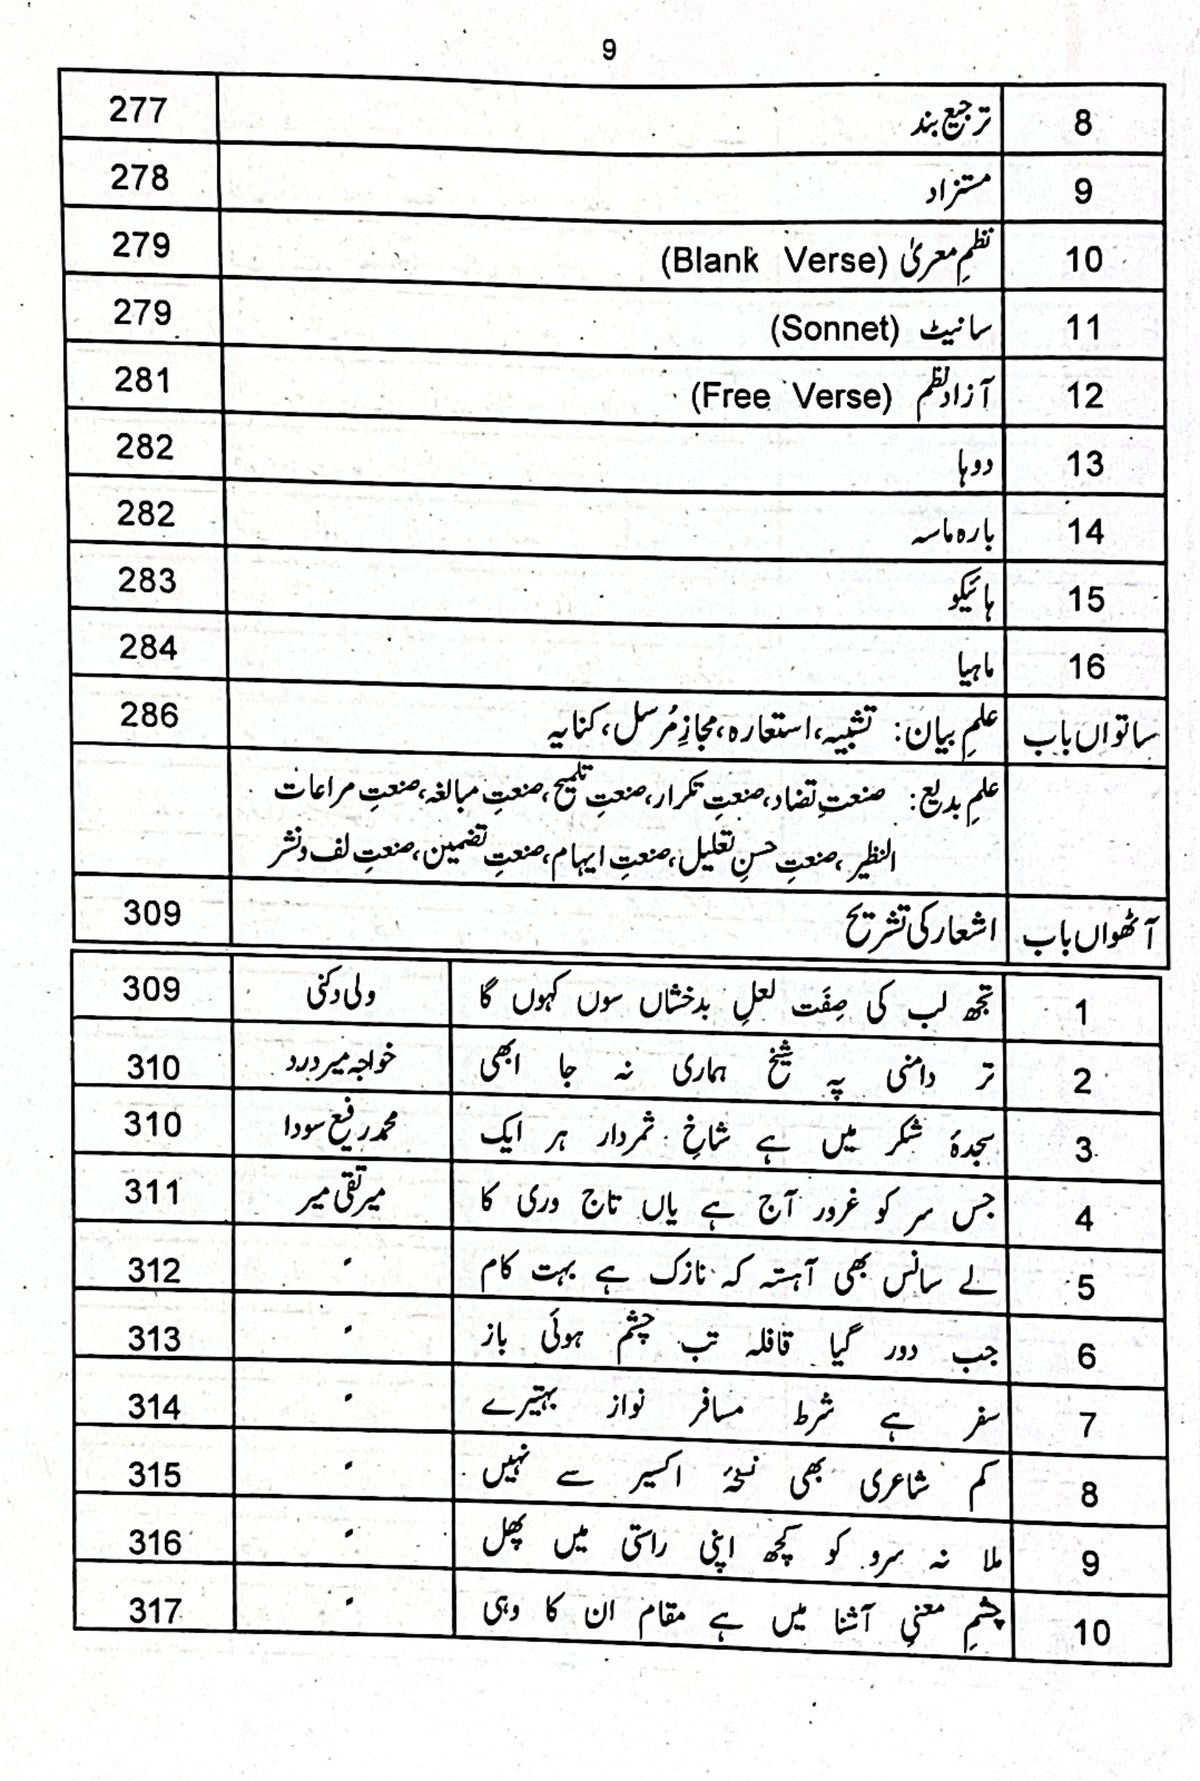 9
8 ترجیع بند 277
9 مستزاد 278
10 نظمِ معریٰ (Blank Verse) 279
11 سانیٹ (Sonnet) 279
12 آزاد نظم (Free Verse) 281
13 دوہا 282
14 بارہ ماسہ 282
15 ہائیکو 283
16 ماہیا 284
ساتواں باب علمِ بیان: تشبیہ، استعارہ، مجازِ مُرسل، کنایہ 286
علمِ بدیع: صنعتِ تضاد، صنعتِ تکرار، صنعتِ تلمیح، صنعتِ مبالغہ، صنعتِ مراعات
النظیر، صنعتِ حسنِ تعلیل، صنعتِ ایہام، صنعتِ تضمین، صنعتِ لف و نشر
آٹھواں باب اشعار کی تشریح 309
1 تجھ لب کی صِفَت لعلِ بدخشاں سوں کہوں گا ولی دکنی 309
2 تر دامنی پہ شیخ ہماری نہ جا ابھی خواجہ میر درد 310
3 سجدۂ شکر میں ہے شاخِ ثمردار ہر ایک محمد رفیع سودا 310
4 جس سر کو غرور آج ہے یاں تاج وری کا میر تقی میر 311
5 لے سانس بھی آہستہ کہ نازک ہے بہت کام ״ 312
6 جب دور گیا قافلہ تب چشم ہوئی باز ״ 313
7 سفر ہے شرط مسافر نواز بہتیرے ״ 314
8 کم شاعری بھی نسخۂ اکسیر سے نہیں ״ 315
9 ملا نہ سرو کو کچھ اپنی راستی میں پھل ״ 316
10 چشمِ معنیِ آشنا میں ہے مقام ان کا وہی ״ 317